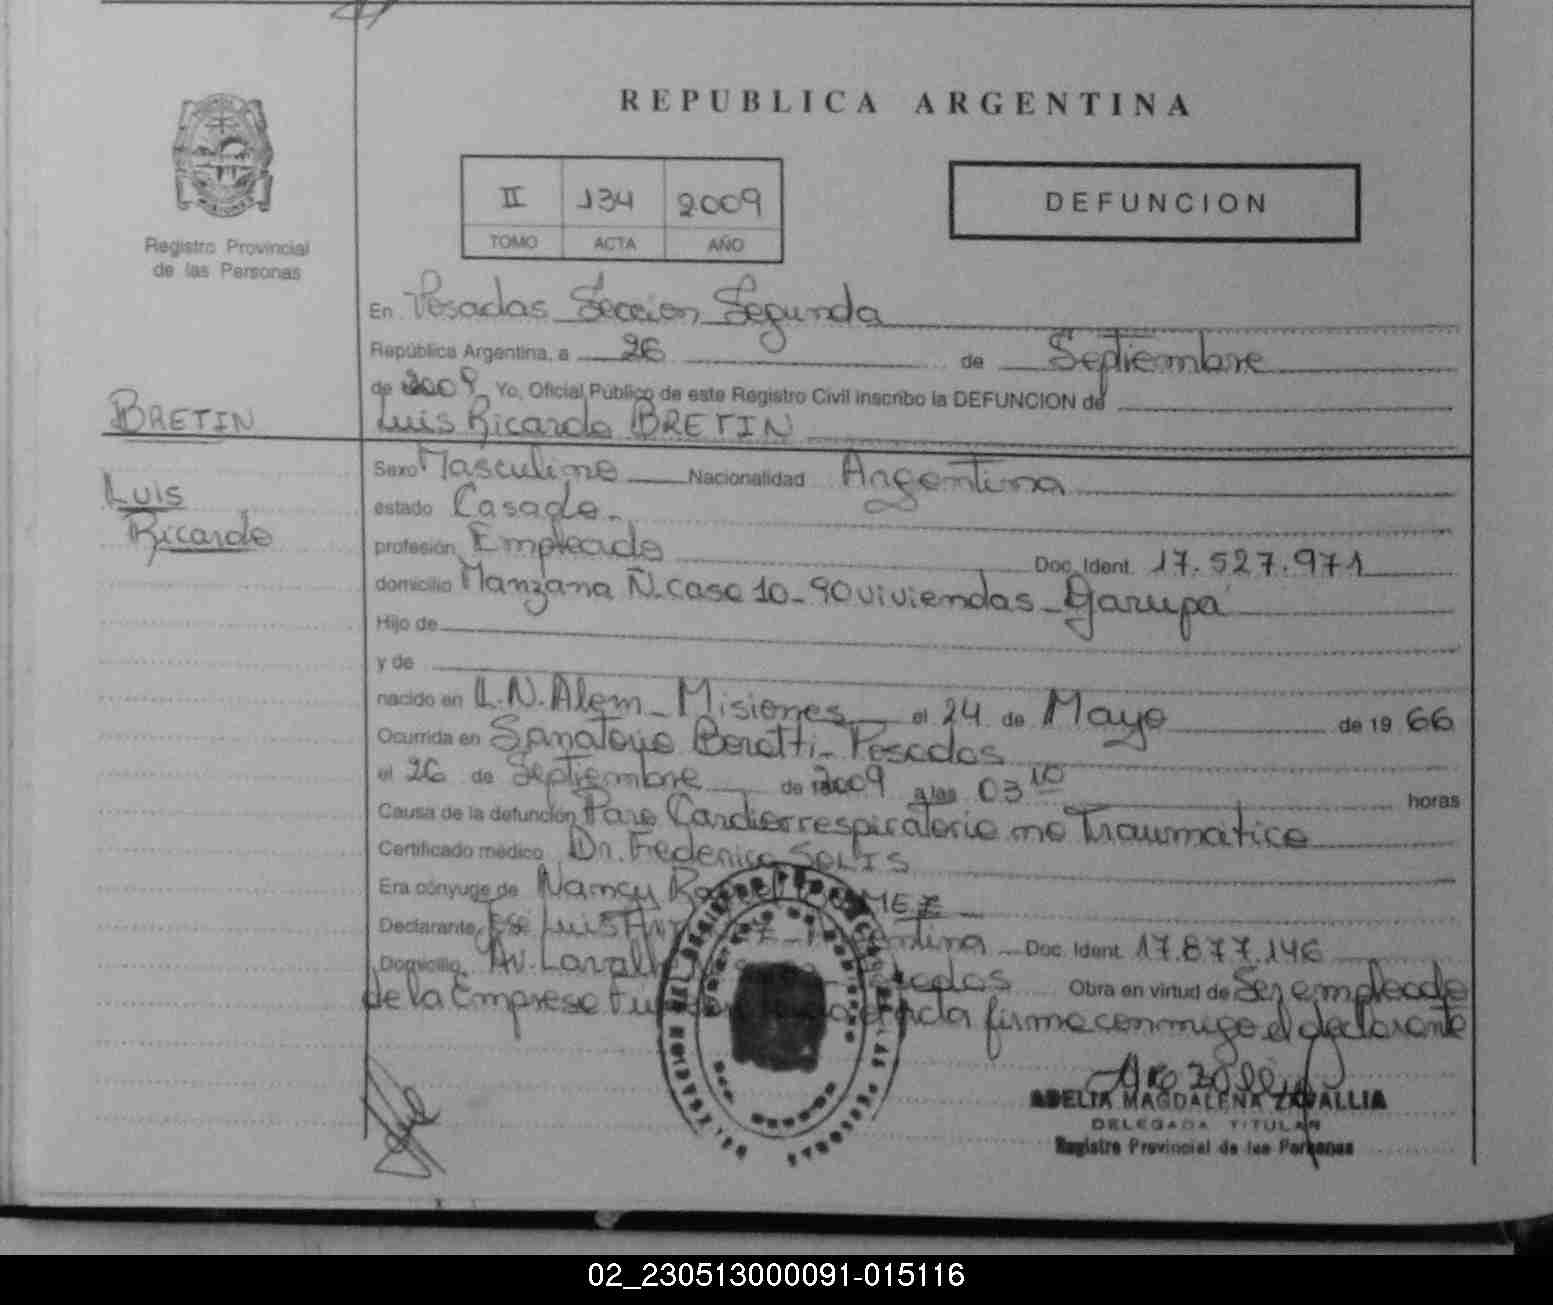 REPUBLICA ARGENTINA
Registro Provincial
de las Personas
II 134 2009
TOMO ACTA AÑO
DEFUNCION
En Posadas Seccion Segunda
República Argentina, a 26 de Septiembre
de 2009 Yo, Oficial Público de este Registro Civil inscribo la DEFUNCION de
Luis Ricardo BRETIN
BRETIN
Luis
Ricardo
Sexo Masculino Nacionalidad Argentina
estado Casado.
profesión Empleado Doc. Ident. 17.527.971
domicilio Manzana Ñ. casa 10 - 90 viviendas - Garupá
Hijo de
y de
nacido en L.N. Alem - Misiones el 24 de Mayo de 19 66
Ocurrida en Sanatorio Boratti - Posadas
el 26 de Septiembre de 2009 a las 03 10 horas
Causa de la defunción Paro Cardiorrespiratorio no Traumatico
Certificado médico Dr. Federico SOLIS
Era cónyuge de Nancy
Declarante José Luis Doc. Ident. 17.877.146
Domicilio Av. Obra en virtud de Ser empleado
de la Empresa acta firma conmigo el declarante
ADELIA MAGDALENA ZAVALLIA
DELEGADA TITULAR
Registro Provincial de las Personas
02_230513000091-015116